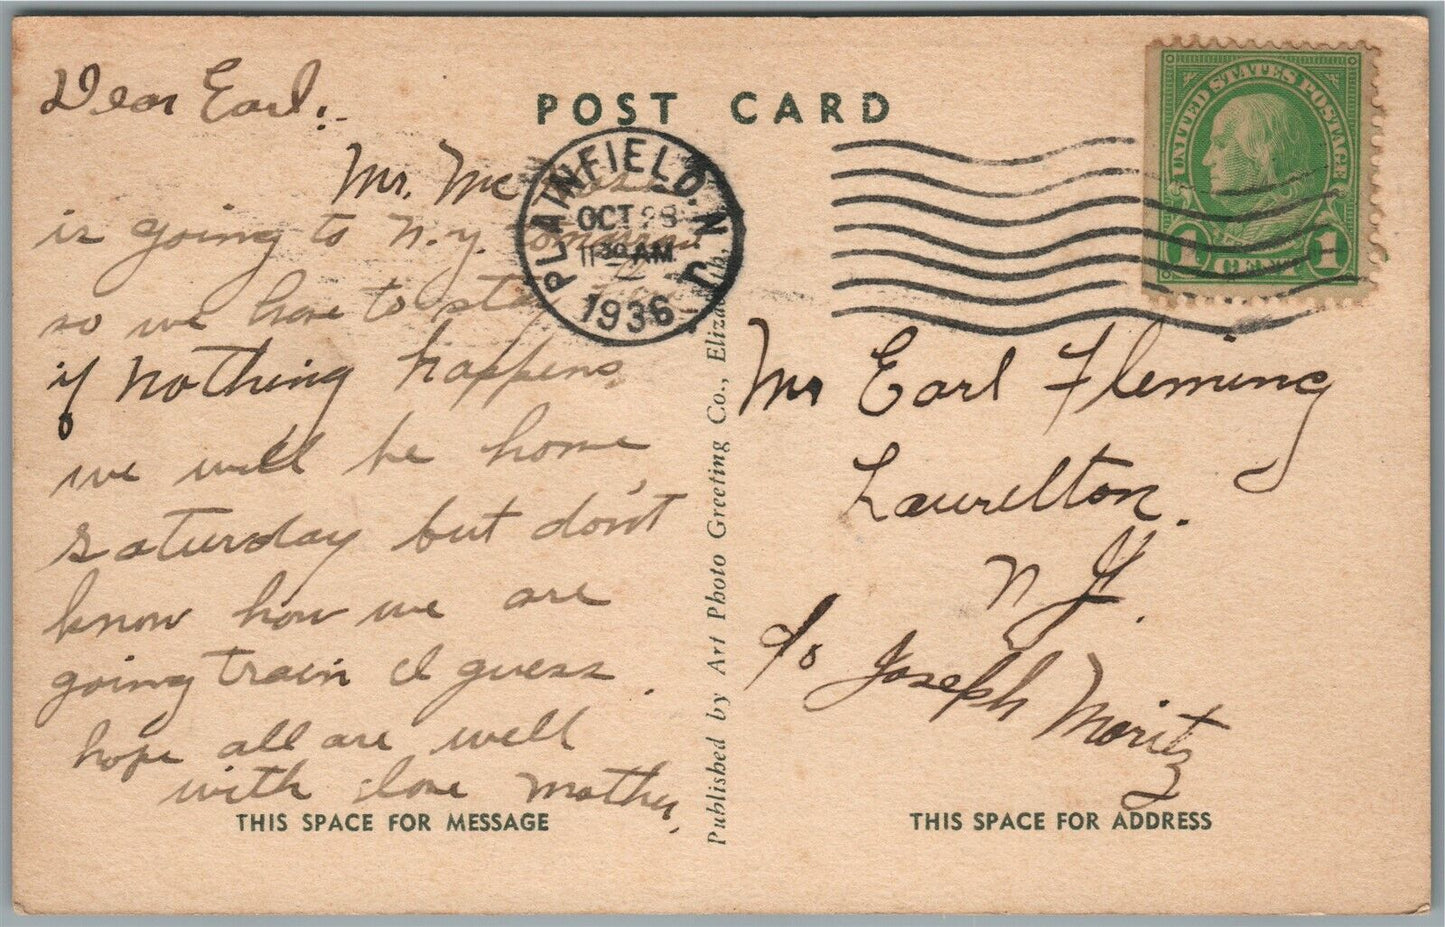 POST CARD
Dear Earl:-
Mr. Mc
is going to N.Y.
so we have to
if nothing happens,
we will be home
Saturday but don't
know how we are
going train I guess.
hope all are well
with love Mother.
THIS SPACE FOR MESSAGE
PLAINFIELD, N.J.
OCT 28
11 30 AM
1936
Published by Art Photo Greeting Co., Eliza
UNITED STATES POSTAGE
1 CENT 1
Mr Earl Fleming
Laurelton.
N. J.
c/o Joseph Moritz
THIS SPACE FOR ADDRESS